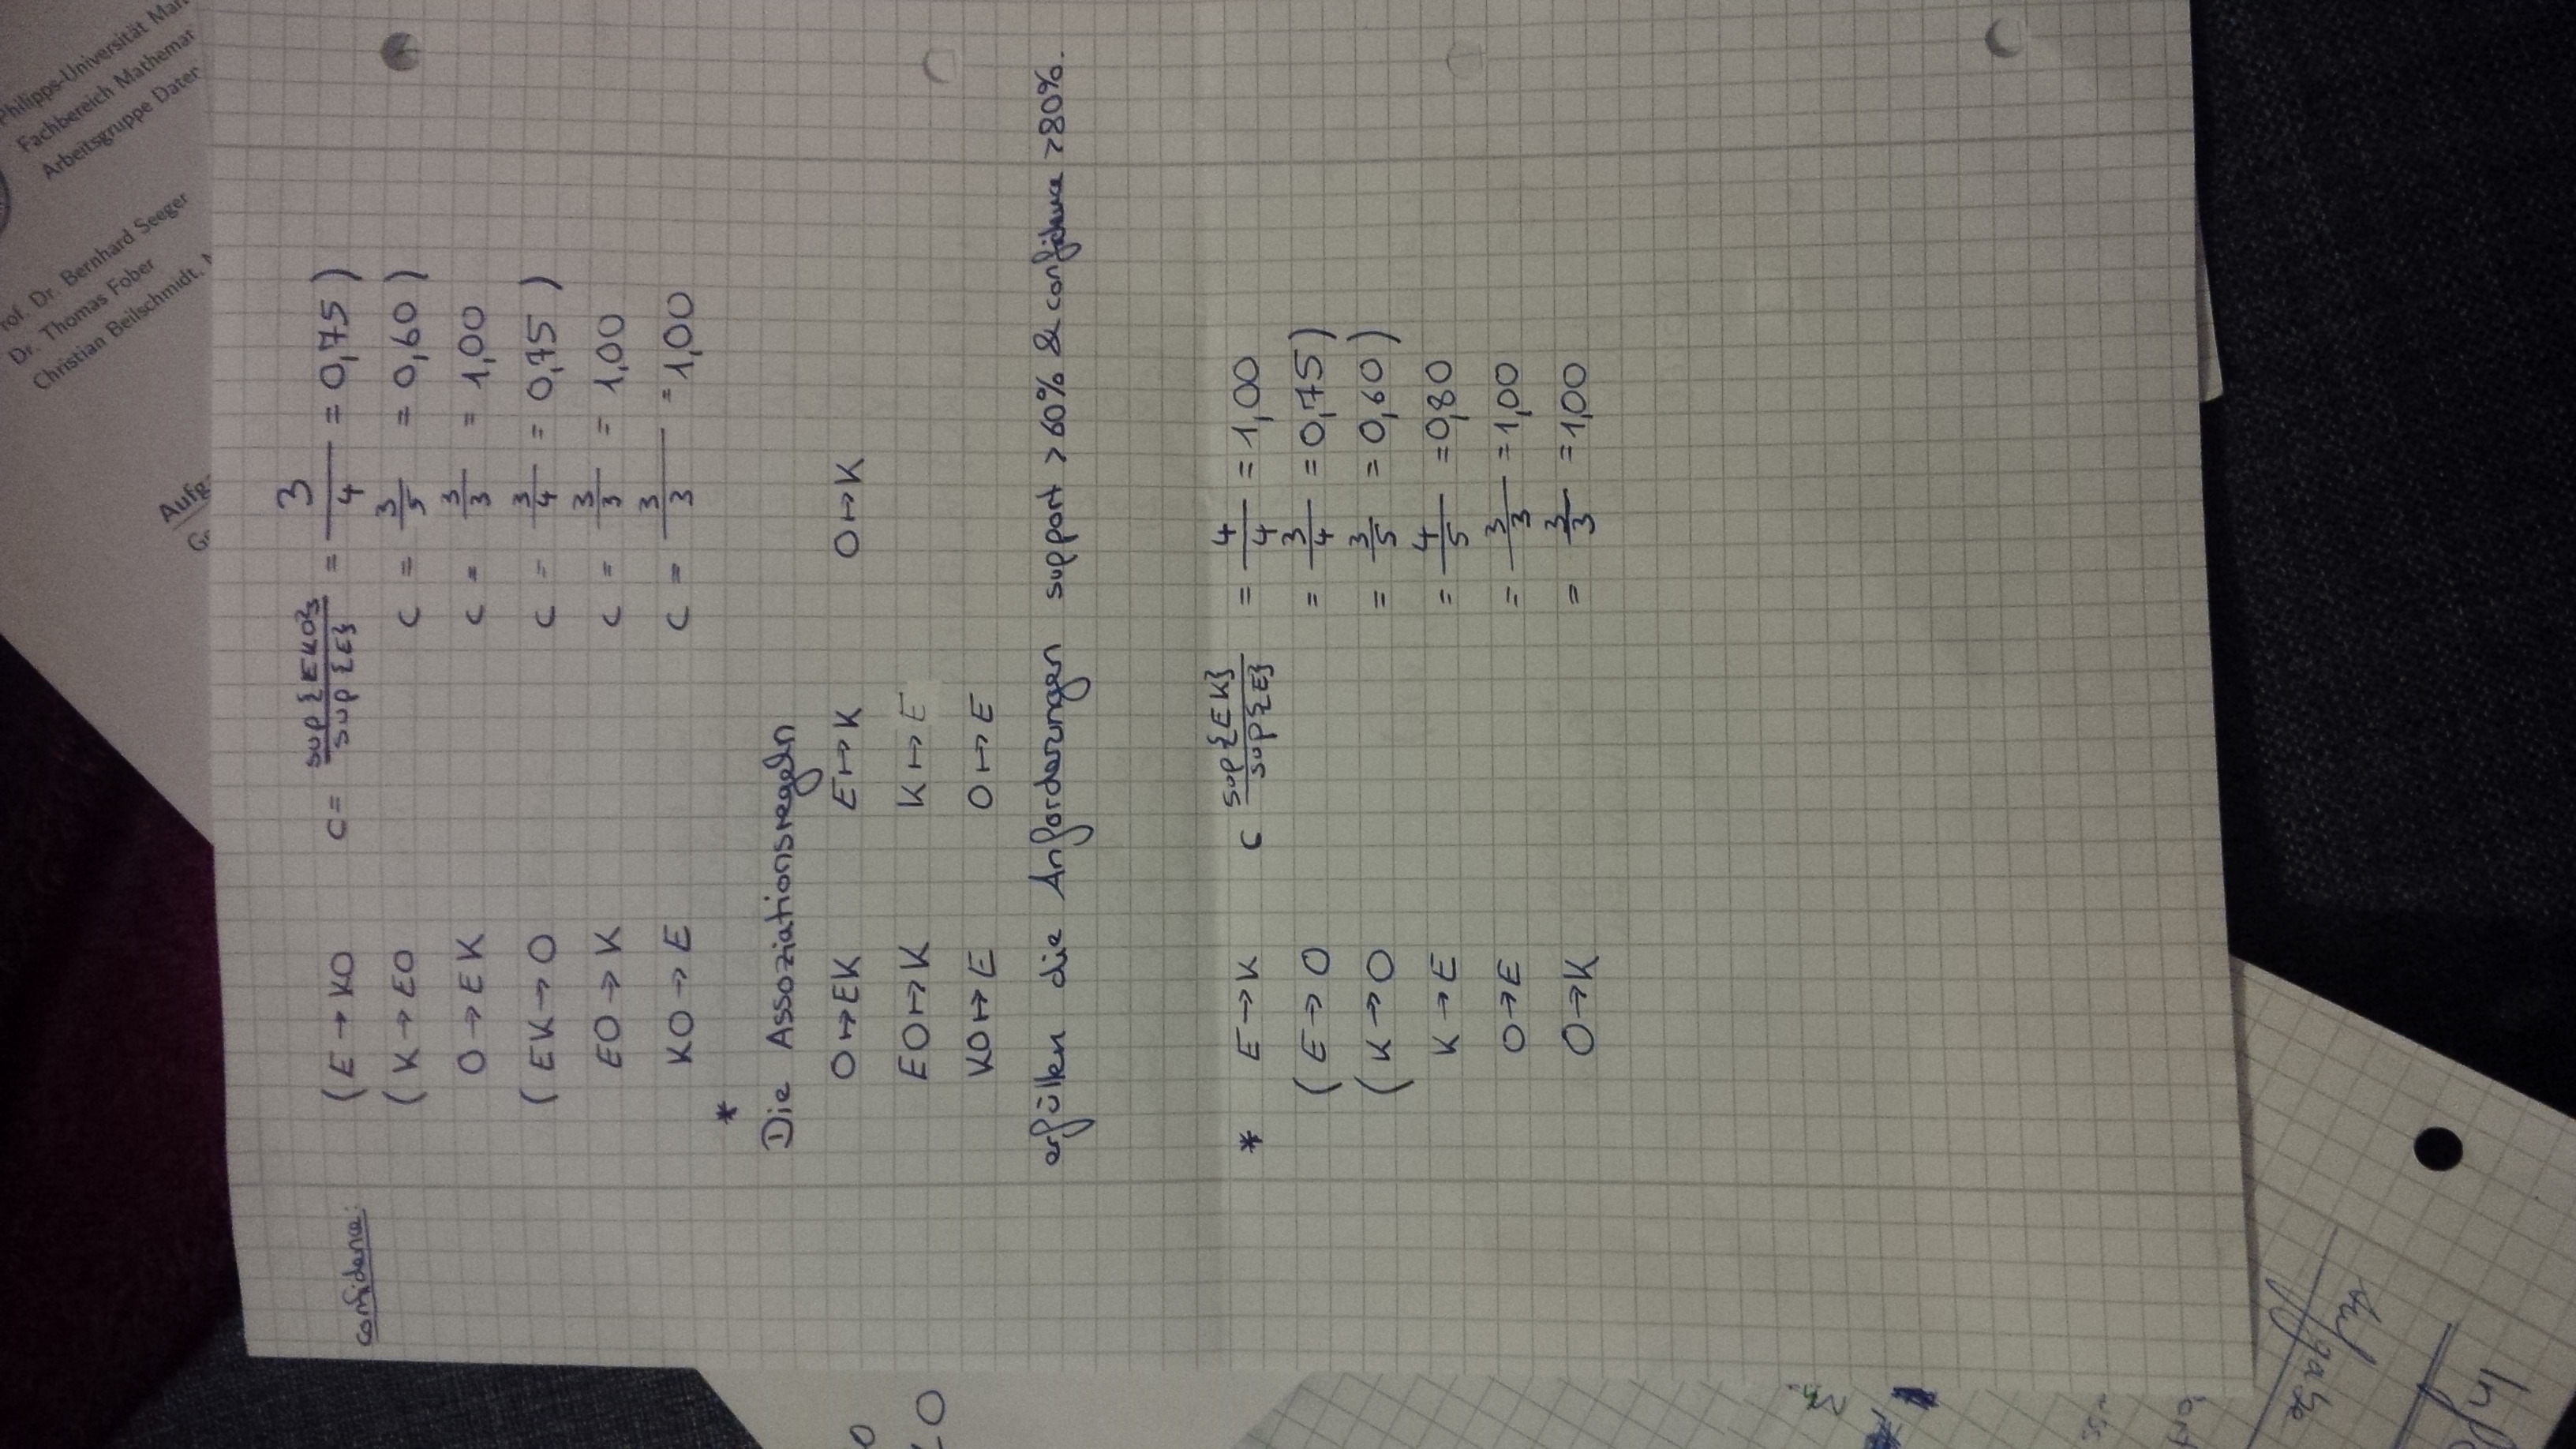 Philipps-Universität Mar
Fachbereich Mathemat
Arbeitsgruppe Daten
rof. Dr. Bernhard Seeger
Dr. Thomas Fober
Christian Beilschmidt,
Aufg
confidence:
( E → KO c = sup{EKO} / sup{E} = 3/4 = 0,75 )
( K → EO c = 3/5 = 0,60 )
O → EK c = 3/3 = 1,00
( EK → O c = 3/4 = 0,75 )
EO → K c = 3/3 = 1,00
KO → E c = 3/3 = 1,00
*
Die Assoziationsregeln
O ↦ EK E ↦ K O ↦ K
EO ↦ K K ↦ E
KO ↦ E O ↦ E
erfüllen die Anforderungen support > 60% & confidence > 80%.
* E → K c sup{EK} / sup{E} = 4/4 = 1,00
( E → O = 3/4 = 0,75 )
( K → O = 3/5 = 0,60 )
K → E = 4/5 = 0,80
O → E = 3/3 = 1,00
O → K = 3/3 = 1,00
Aufgabe